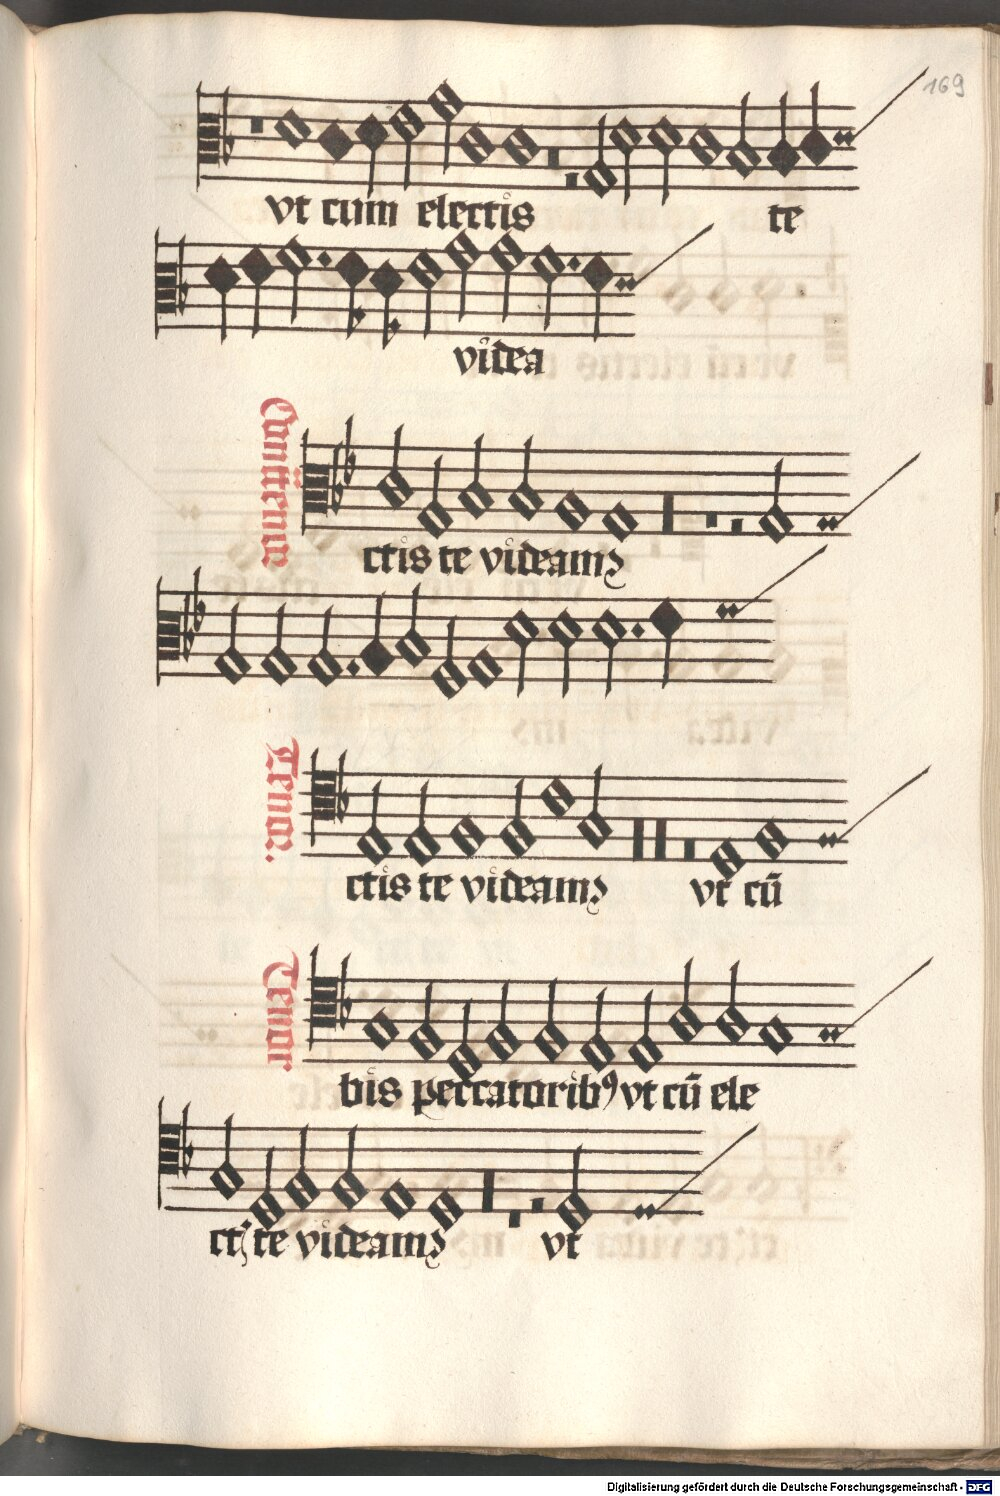 169
vt cum electis te
videa
Contratenor
ctis te videamꝫ
Tenor.
ctis te videamꝫ vt cū
Tenor
bis peccatoribꝰ vt cū ele
ctꝭ te videamꝫ vt
Digitalisierung gefördert durch die Deutsche Forschungsgemeinschaft - DFG